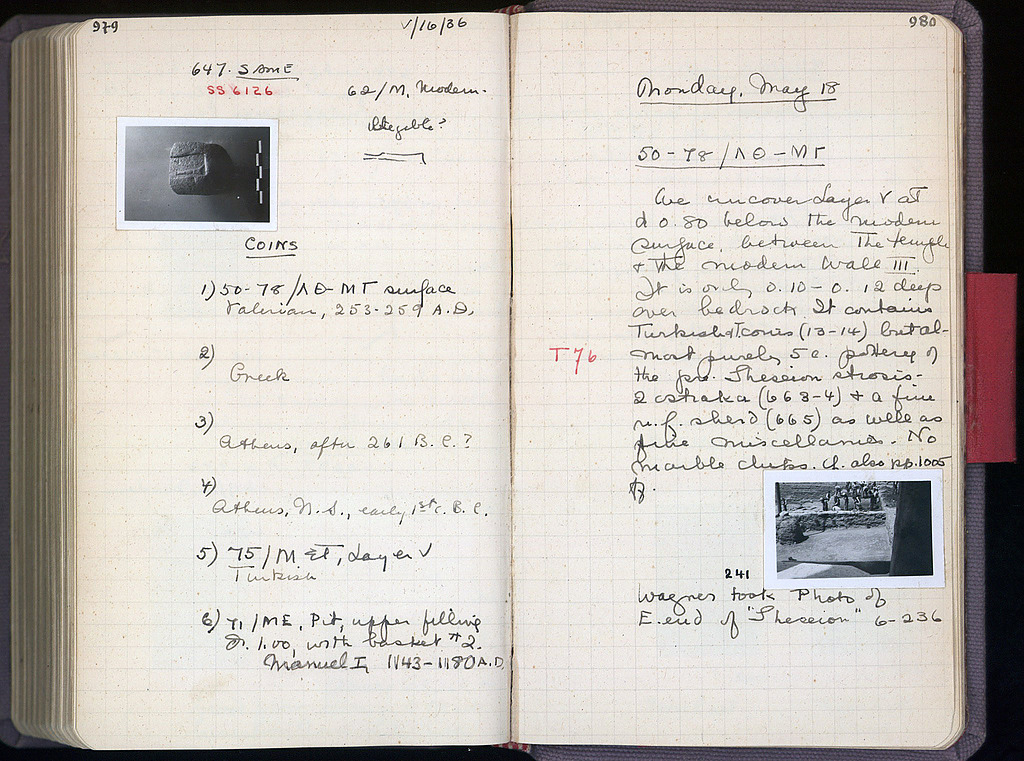 979
V/16/36
647. SAME
SS 6126
62/M, Modern.
Illegible?
COINS
1) 50-78/ΛΘ-ΜΓ surface
Valerian, 253-259 A.D.
2)
Greek
3)
Athens, after 261 B.C.?
4)
Athens, N.S., early 1st c. B.C.
5) 75/M, Layer V
Turkish
6) 71/ME, Pit, upper filling
1.00, with basket #2.
Manuel I, 1143-1180 A.D.
980
Monday, May 18
50-78/ΛΘ-ΜΓ
We uncover Layer V at
d 0.80 below the modern
surface, between The temple
+ the modern Wall III.
It is only 0.10-0.12 deep
over bedrock. It contains
Turkish coins (13-14) but al-
T 76
most purely 5 c. pottery of
the pre-Theseion strosis-
2 ostraka (663-4) + a fine
r.f. sherd (665) as well as
fine miscellanies. No
marble chips. Cf. also pp. 1005
ff.
241
Wagner took Photo of
E. end of "Theseion" 6-236